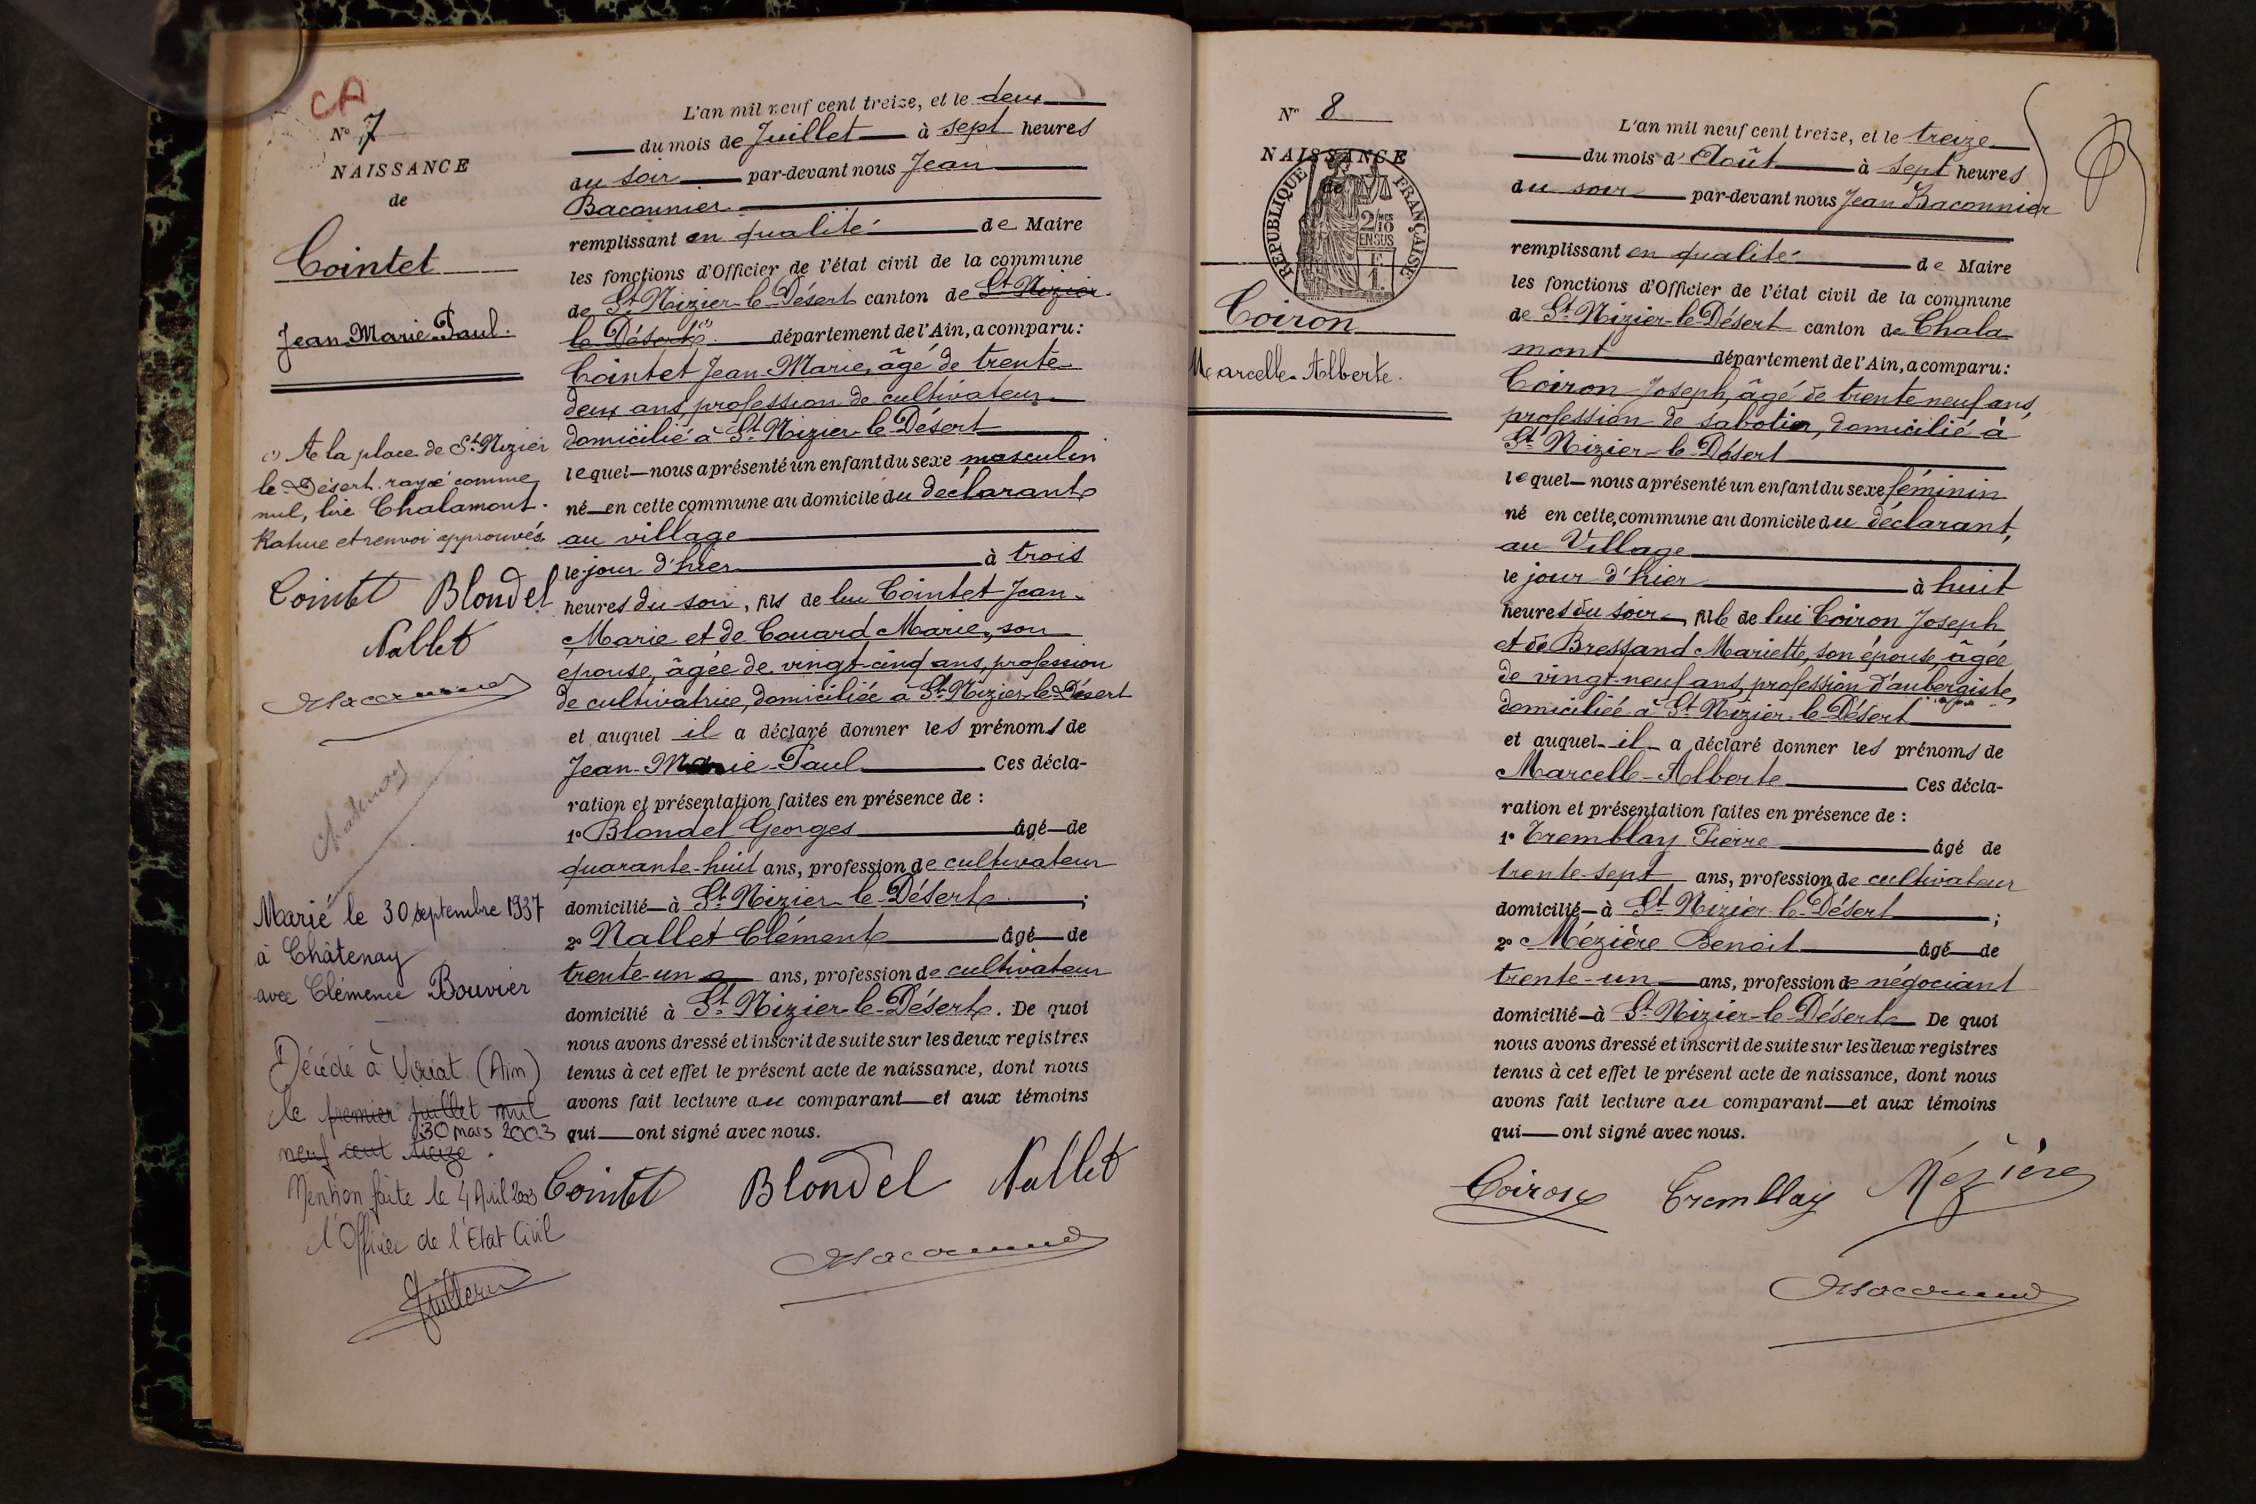 CA
N° 7
NAISSANCE
de
Cointet
Jean-Marie-Paul.
(1) A la place de St Nizier
le-Désert rayé comme
nul, lire Chalamont.
Rature et renvoi approuvés
Cointet Blondel
Nallet
Chatenay
Marié le 30 septembre 1937
à Châtenay
avec Clémence Bouvier
Décédé à Viriat (Ain)
le premier juillet mil
30 mars 2003
neuf cent treize.
Mention faite le 4 Avril 2003
L'Officier de l'Etat Civil
L'an mil neuf cent treize, et le deux
du mois de Juillet à sept heures
du soir par-devant nous Jean
Baconnier
remplissant en qualité de Maire
les fonctions d'Officier de l'état civil de la commune
de St Nizier-le-Désert canton de St Nizier
le Désert (1) département de l'Ain, a comparu:
Cointet Jean-Marie, âgé de trente-
deux ans, profession de cultivateur
domicilié à St Nizier-le-Désert
lequel nous a présenté un enfant du sexe masculin
né en cette commune au domicile du déclarant
au village
le jour d'hier à trois
heures du soir, fils de lui Cointet Jean-
Marie et de Couard Marie, son
épouse, âgée de vingt-cinq ans, profession
de cultivatrice, domiciliée à St Nizier-le-Désert
et auquel il a déclaré donner les prénoms de
Jean-Marie-Paul Ces décla-
ration et présentation faites en présence de :
1° Blondel Georges âgé de
quarante-huit ans, profession de cultivateur
domicilié à St Nizier-le-Désert ;
2° Nallet Clément âgé de
trente-un ans, profession de cultivateur
domicilié à St Nizier-le-Désert. De quoi
nous avons dressé et inscrit de suite sur les deux registres
tenus à cet effet le présent acte de naissance, dont nous
avons fait lecture au comparant et aux témoins
qui ont signé avec nous.
Cointet Blondel Nallet
N° 8
NAISSANCE
de
RÉPUBLIQUE FRANÇAISE
2/10 MES
EN SUS
E
1.
Coiron
Marcelle-Alberte.
L'an mil neuf cent treize, et le treize
du mois d'Août à sept heures
du soir par-devant nous Jean Baconnier
remplissant en qualité de Maire
les fonctions d'Officier de l'état civil de la commune
de St Nizier-le-Désert canton de Chala
mont département de l'Ain, a comparu:
Coiron Joseph, âgé de trente neuf ans,
profession de sabotier, domicilié à
St Nizier-le-Désert
lequel nous a présenté un enfant du sexe féminin
né en cette commune au domicile du déclarant,
au Village
le jour d'hier à huit
heures du soir, fille de lui Coiron Joseph
et de Bressand Mariette, son épouse, âgée
de vingt-neuf ans, profession d'aubergiste,
domiciliée à St Nizier-le-Désert
et auquel il a déclaré donner les prénoms de
Marcelle-Alberte Ces décla-
ration et présentation faites en présence de :
1° Tremblay Pierre âgé de
trente-sept ans, profession de cultivateur
domicilié à St Nizier-le-Désert ;
2° Mézière Benoit âgé de
trente-un ans, profession de négociant
domicilié à St Nizier-le-Désert De quoi
nous avons dressé et inscrit de suite sur les deux registres
tenus à cet effet le présent acte de naissance, dont nous
avons fait lecture au comparant et aux témoins
qui ont signé avec nous.
Coiron Tremblay Mézière